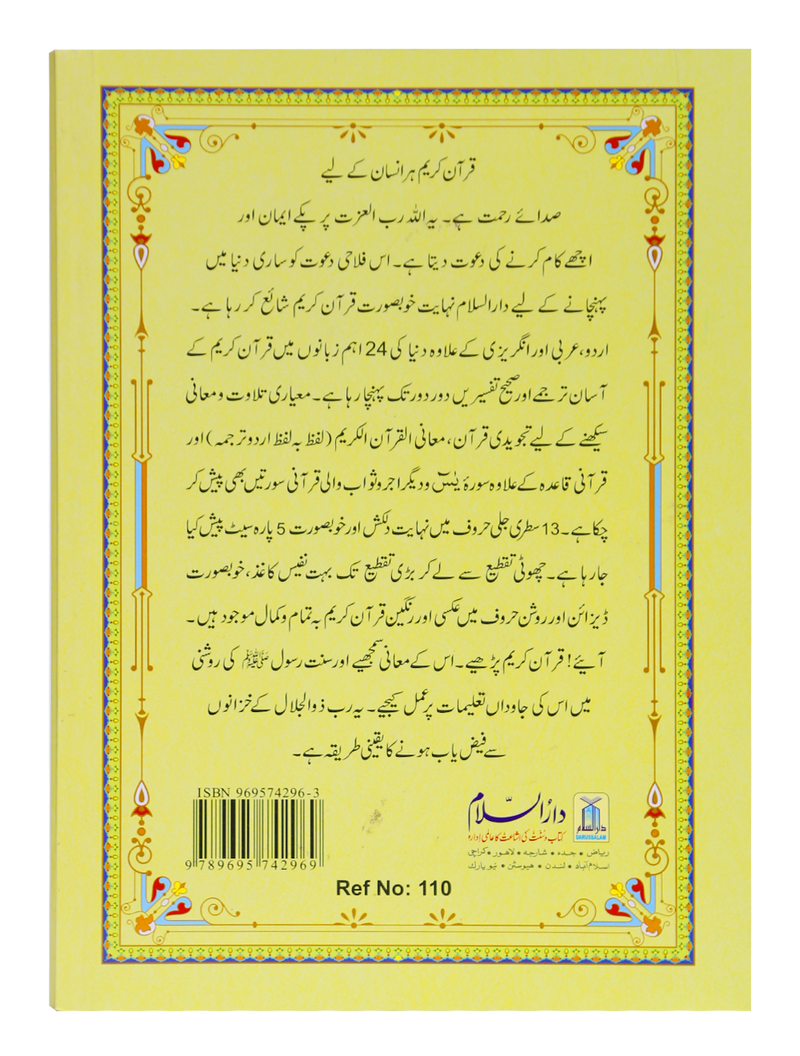 قرآن کریم ہر انسان کے لیے
صدائے رحمت ہے۔ یہ اللہ رب العزت پر پکے ایمان اور
اچھے کام کرنے کی دعوت دیتا ہے۔ اس فلاحی دعوت کو ساری دنیا میں
پہنچانے کے لیے دارالسلام نہایت خوبصورت قرآن کریم شائع کر رہا ہے۔
اردو، عربی اور انگریزی کے علاوہ دنیا کی 24 اہم زبانوں میں قرآن کریم کے
آسان ترجمے اور صحیح تفسیریں دور دور تک پہنچا رہا ہے۔ معیاری تلاوت و معانی
سیکھنے کے لیے تجویدی قرآن، معانی القرآن الکریم (لفظ بہ لفظ اردو ترجمہ) اور
قرآنی قاعدہ کے علاوہ سورۂ یٰسٓ و دیگر اجر و ثواب والی قرآنی سورتیں بھی پیش کر
چکا ہے۔ 13 سطری جلی حروف میں نہایت دلکش اور خوبصورت 5 پارہ سیٹ پیش کیا
جا رہا ہے۔ چھوٹی تقطیع سے لے کر بڑی تقطیع تک بہت نفیس کاغذ، خوبصورت
ڈیزائن اور روشن حروف میں عکسی اور رنگین قرآن کریم بہ تمام و کمال موجود ہیں۔
آیئے! قرآن کریم پڑھیے۔ اس کے معانی سمجھیے اور سنت رسول ﷺ کی روشنی
میں اس کی جاوداں تعلیمات پر عمل کیجیے۔ یہ رب ذوالجلال کے خزانوں
سے فیض یاب ہونے کا یقینی طریقہ ہے۔
ISBN 969574296-3
9 789695 742969
دارالسلام
کتاب و سنت کی اشاعت کا عالمی ادارہ
دارالسلام
DARUSSALAM
ریاض • جدہ • شارجہ • لاہور • کراچی
اسلام آباد • لندن • هیوسٹن • نیو یارک
Ref No: 110